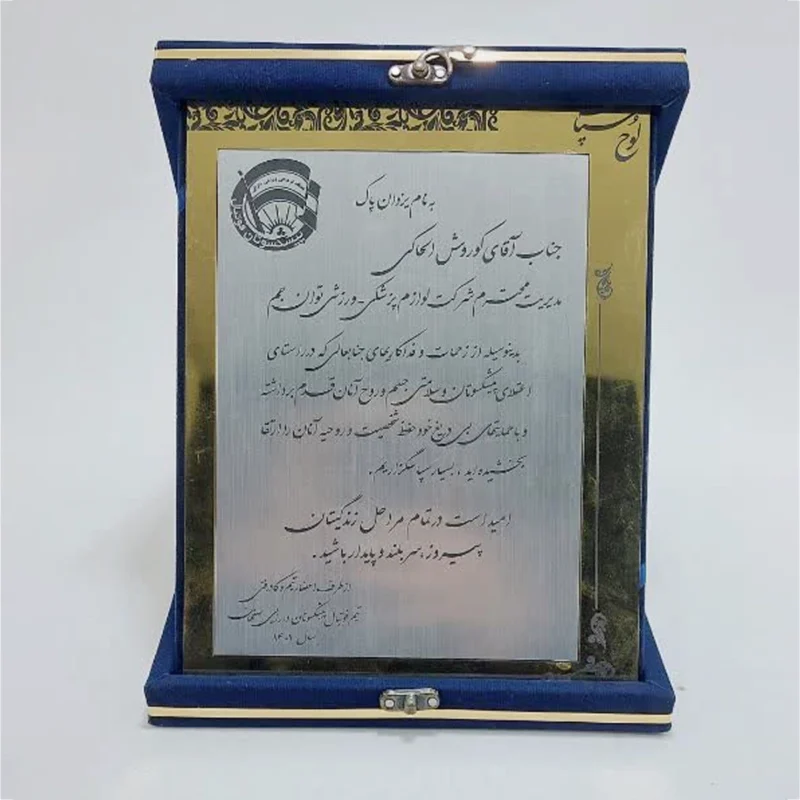 لوح سپاس
به نام یزدان پاک
جناب آقای کوروش الحاکی
مدیریت محترم شرکت لوازم پزشکی - ورزشی توان جم
بدینوسیله از زحمات و فداکاریهای جنابعالی که در راستای
اعتلای پیشکسوتان و سلامتی جسم و روح آنان قدم برداشته
و با حمایتهای بی دریغ خود حفظ شخصیت و روحیه آنان را ارتقا
بخشیده اید ، بسیار سپاسگزاریم .
امید است در تمام مراحل زندگیتان
پیروز ، سربلند و پایدار باشید .
از طرف اعضاء تیم و کادر فنی
تیم فوتبال پیشکسوتان
سال ۱۴۰۱